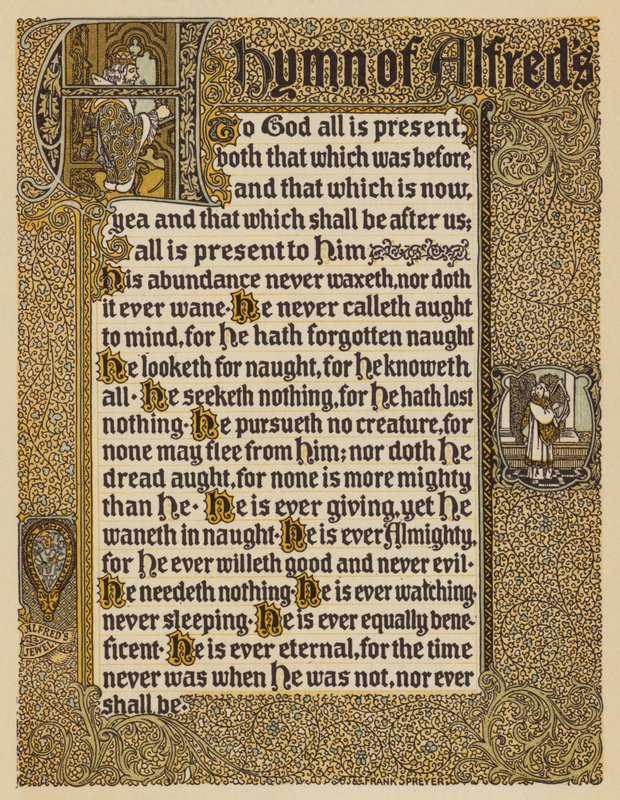 A hymn of Alfred's
To God all is present,
both that which was before,
and that which is now,
yea and that which shall be after us;
all is present to him
His abundance never waxeth, nor doth
it ever wane. He never calleth aught
to mind, for he hath forgotten naught
He looketh for naught, for he knoweth
all. He seeketh nothing, for he hath lost
nothing. He pursueth no creature, for
none may flee from him; nor doth he
dread aught, for none is more mighty
than he. He is ever giving, yet he
waneth in naught. He is ever Almighty,
for he ever willeth good and never evil.
He needeth nothing. He is ever watching,
never sleeping. He is ever equally bene-
ficent. He is ever eternal, for the time
never was when he was not, nor ever
shall be.
ALFRED'S
JEWEL
FRANK SPREYER